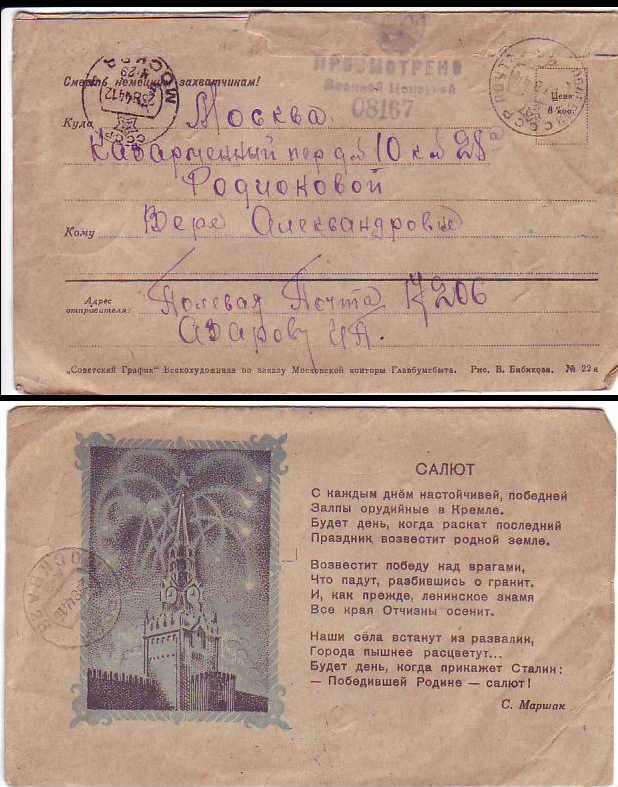 Смерть немецким захватчикам!
ПРОСМОТРЕНО
Военной Цензурой
08167
МОСКВА
СССР
ПОЧТА СССР
Цена
8 коп.
Куда Москва
Казарменный пер д 8 10 кв 28а
Родионовой
Кому Вере Александровне
Адрес
отправителя: Полевая Почта 17206
Азарову И П.
„Советский График" Всекохудожника по заказу Московской конторы Главбумсбыта. Рис. В. Бибикова. № 22а
САЛЮТ
С каждым днём настойчивей, победней
Залпы орудийные в Кремле.
Будет день, когда раскат последний
Праздник возвестит родной земле.
Возвестит победу над врагами,
Что падут, разбившись о гранит.
И, как прежде, ленинское знамя
Все края Отчизны осенит.
Наши сёла встанут из развалин,
Города пышнее расцветут...
Будет день, когда прикажет Сталин:
— Победившей Родине — салют!
С. Маршак